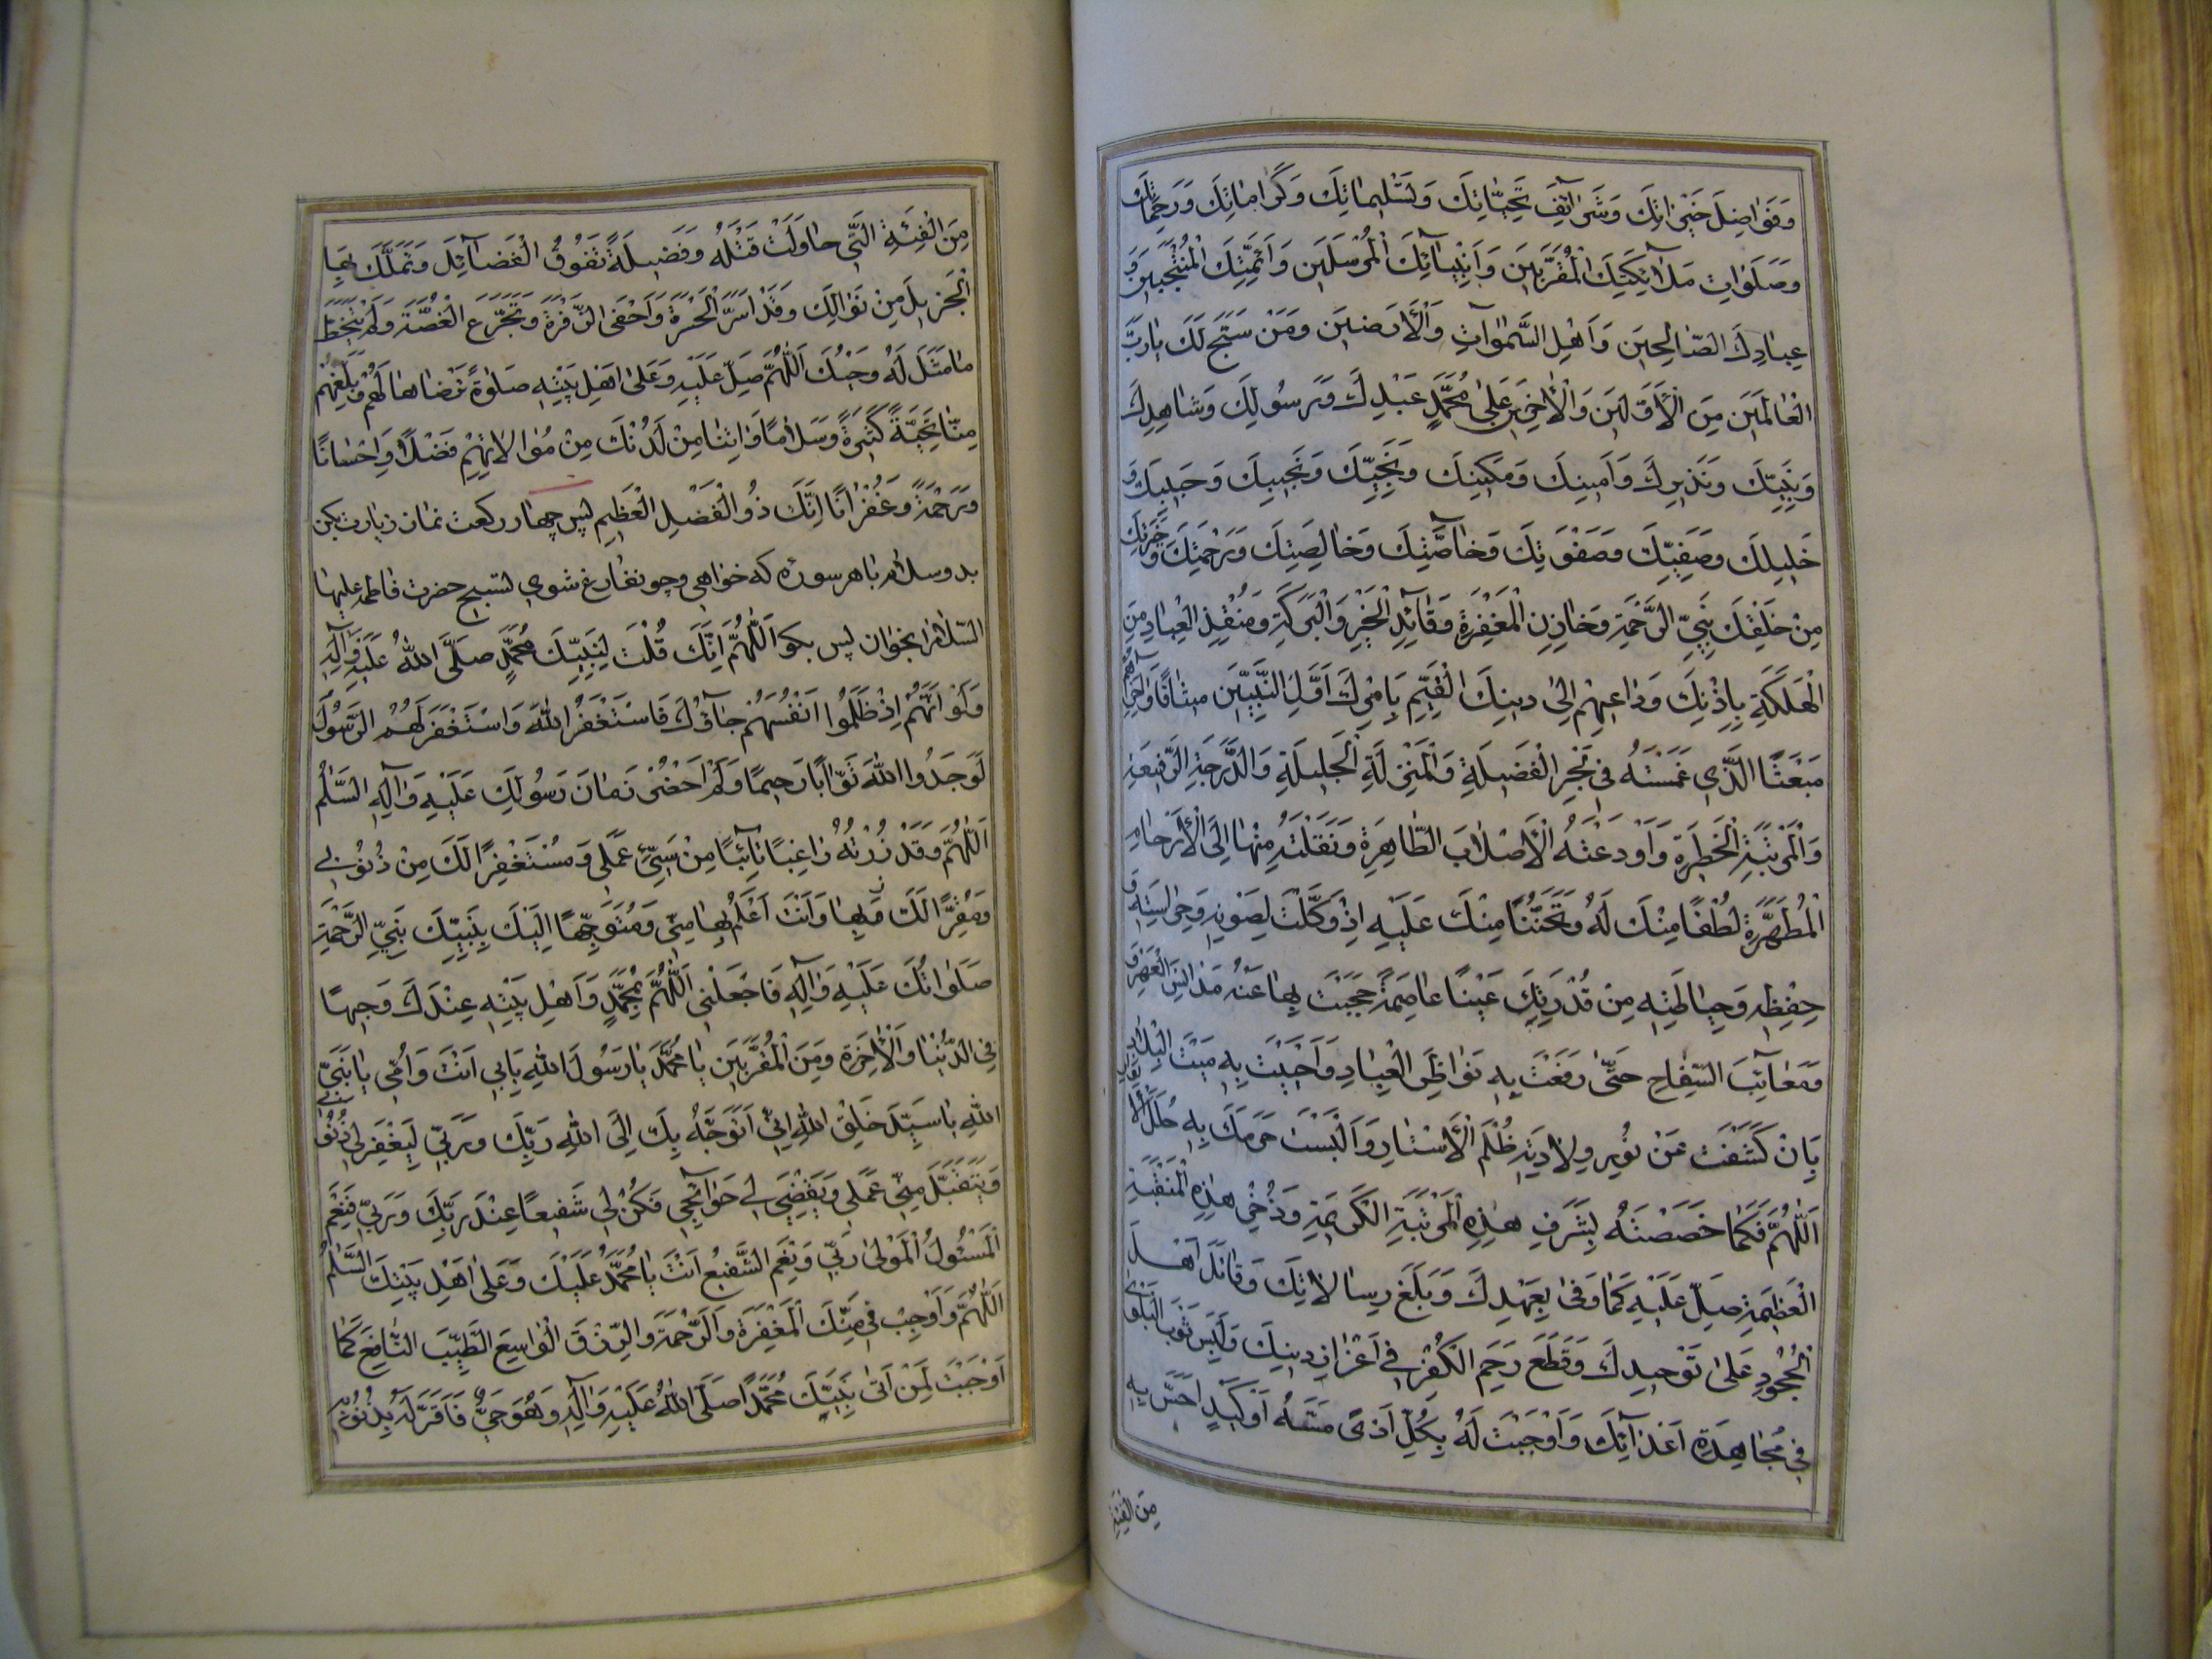 وَفَوٰاضِلَ خَيْرٰاتِكَ وَشَرٰآئِفَ تَحِيّٰاتِكَ وَتَسْلِيمٰاتِكَ وَكَرٰامٰاتِكَ وَرَحَمٰاتِكَ
وَصَلَوٰاتِ مَلٰآئِكَتِكَ الْمُقَرَّبِينَ وَاَنْبِيٰآئِكَ الْمُرْسَلِينَ وَاَئِمَّتِكَ الْمُنْتَجَبِينَ وَ
عِبٰادِكَ الصّٰالِحِينَ وَاَهْلِ السَّمٰوٰاتِ وَالْأَرَضِينَ وَمَنْ سَبَّحَ لَكَ يٰارَبَّ
الْعٰالَمِينَ مِنَ الْأَوَّلِينَ وَالْأٰخِرِينَ عَلىٰ مُحَمَّدٍ عَبْدِكَ وَرَسُولِكَ وَشٰاهِدِكَ
وَنَبِيِّكَ وَنَذِيرِكَ وَاَمِينِكَ وَمَكِينِكَ وَنَجِيِّكَ وَنَجِيبِكَ وَحَبِيبِكَ وَ
خَلِيلِكَ وَصَفِيِّكَ وَصَفْوَتِكَ وَخٰاصَّتِكَ وَخٰالِصَتِكَ وَرَحْمَتِكَ وَخَيْرِ خِيَرَتِكَ
مِنْ خَلْقِكَ نَبِيِّ الرَّحْمَةِ وَخٰازِنِ الْمَغْفِرَةِ وَقٰآئِدِ الْخَيْرِ وَالْبَرَكَةِ وَمُنْقِذِ الْعِبٰادِ مِنَ
الْهَلَكَةِ بِاِذْنِكَ وَدٰاعِيهِمْ اِلىٰ دِينِكَ الْقَيِّمِ بِاَمْرِكَ اَوَّلِ النَّبِيِّينَ مِيثٰاقًا وَاٰخِرِهِمْ
مَبْعَثًا الَّذِي غَمَسْتَهُ فِي بَحْرِ الْفَضِيلَةِ وَالْمَنْزِلَةِ الْجَلِيلَةِ وَالدَّرَجَةِ الرَّفِيعَةِ
وَالْمَرْتَبَةِ الْخَطِيرَةِ وَاَوْدَعْتَهُ الْأَصْلٰابَ الطّٰاهِرَةَ وَنَقَلْتَهُ مِنْهٰا اِلَى الْأَرْحٰامِ
الْمُطَهَّرَةِ لُطْفًا مِنْكَ لَهُ وَتَحَنُّنًا مِنْكَ عَلَيْهِ اِذْ وَكَّلْتَ لِصَوْنِهِ وَحِرٰاسَتِهِ وَ
حِفْظِهِ وَحِيٰاطَتِهِ مِنْ قُدْرَتِكَ عَيْنًا عٰاصِمَةً حَجَبْتَ بِهٰا عَنْهُ مَدٰانِسَ الْعَهْرِ وَ
وَمَعٰآئِبَ السِّفٰاحِ حَتّىٰ رَفَعْتَ بِهِ نَوٰاظِرَ الْعِبٰادِ وَاَحْيَيْتَ بِهِ مَيْتَ الْبِلٰادِ
بِاَنْ كَشَفْتَ عَنْ نُورِ وِلٰادَتِهِ ظُلَمَ الْأَسْتٰارِ وَاَلْبَسْتَ حَرَمَكَ بِهِ حُلَلَ الْأَنْوٰارِ
اَللّٰهُمَّ فَكَمٰا خَصَصْتَهُ بِشَرَفِ هٰذِهِ الْمَرْتَبَةِ الْكَرِيمَةِ وَذُخْرِ هٰذِهِ الْمَنْقَبَةِ
الْعَظِيمَةِ صَلِّ عَلَيْهِ كَمٰا وَفىٰ بِعَهْدِكَ وَبَلَّغَ رِسٰالٰاتِكَ وَقٰاتَلَ اَهْلَ
الْجُحُودِ عَلىٰ تَوْحِيدِكَ وَقَطَعَ رَحِمَ الْكُفْرِ فِي اِعْزٰازِ دِينِكَ وَلَبِسَ ثَوْبَ الْبَلْوىٰ
فِي مُجٰاهَدَةِ اَعْدٰآئِكَ وَاَوْجَبْتَ لَهُ بِكُلِّ اَذىً مَسَّهُ اَوْ كَيْدٍ اَحَسَّ بِهِ
مِنَ الْفِئَةِ
مِنَ الْفِئَةِ الَّتِي حٰاوَلَتْ قَتْلَهُ وَفَضِيلَةً تَفُوقُ الْفَضٰآئِلَ وَتَمَلَّكَ بِهَا
الْجَزِيلَ مِنْ نَوٰالِكَ وَقَدْ اَسَرَّ الْحَسْرَةَ وَاَخْفَى الزَّفْرَةَ وَتَجَرَّعَ الْغُصَّةَ وَلَمْ يَتَخَطَّ
مٰا مَثَّلَ لَهُ وَحْيُكَ اَللّٰهُمَّ صَلِّ عَلَيْهِ وَعَلىٰ اَهْلِ بَيْتِهِ صَلٰوةً تَرْضٰاهٰا لَهُمْ وَبَلِّغْهُمْ
مِنّٰا تَحِيَّةً كَثِيرَةً وَسَلٰامًا وَاٰتِنٰا مِنْ لَدُنْكَ مِنْ مُوٰالٰاتِهِمْ فَضْلًا وَاِحْسٰانًا
وَرَحْمَةً وَغُفْرٰانًا اِنَّكَ ذُوالْفَضْلِ الْعَظِيمِ پس چهار ركعت نماز زيارت بكن
بدو سلام با هر سوره كه خواهى وچو نفارغ شوى تسبيح حضرت فاطمه عليها
السّلام بخوان پس بكو اَللّٰهُمَّ اِنَّكَ قُلْتَ لِنَبِيِّكَ مُحَمَّدٍ صَلَّى اللهُ عَلَيْهِ وَاٰلِهِ
وَلَوْ اَنَّهُمْ اِذْ ظَلَمُوا اَنْفُسَهُمْ جٰآؤُكَ فَاسْتَغْفَرُوا اللهَ وَاسْتَغْفَرَ لَهُمُ الرَّسُولُ
لَوَجَدُوا اللهَ تَوّٰابًا رَحِيمًا وَلَمْ اَحْضُرْ زَمٰانَ رَسُولِكَ عَلَيْهِ وَاٰلِهِ السَّلٰمُ
اَللّٰهُمَّ وَقَدْ زُرْتُهُ رٰاغِبًا تٰآئِبًا مِنْ سَيِّئِ عَمَلِي وَمُسْتَغْفِرًا لَكَ مِنْ ذُنُوبِي
وَمُقِرًّا لَكَ بِهٰا وَاَنْتَ اَعْلَمُ بِهٰا مِنِّي وَمُتَوَجِّهًا اِلَيْكَ بِنَبِيِّكَ نَبِيِّ الرَّحْمَةِ
صَلَوٰاتُكَ عَلَيْهِ وَاٰلِهِ فَاجْعَلْنِي اَللّٰهُمَّ بِمُحَمَّدٍ وَاَهْلِ بَيْتِهِ عِنْدَكَ وَجِيهًا
فِي الدُّنْيٰا وَالْأٰخِرَةِ وَمِنَ الْمُقَرَّبِينَ يٰا مُحَمَّدُ يٰا رَسُولَ اللهِ بِاَبِي اَنْتَ وَاُمِّي يٰا نَبِيَّ
اللهِ يٰا سَيِّدَ خَلْقِ اللهِ اِنِّي اَتَوَجَّهُ بِكَ اِلَى اللهِ رَبِّكَ وَرَبِّي لِيَغْفِرَ لِي ذُنُوبِي
وَيَتَقَبَّلَ مِنِّي عَمَلِي وَيَقْضِيَ لِي حَوٰآئِجِي فَكُنْ لِي شَفِيعًا عِنْدَ رَبِّكَ وَرَبِّي فَنِعْمَ
الْمَسْئُولُ الْمَوْلىٰ رَبِّي وَنِعْمَ الشَّفِيعُ اَنْتَ يٰا مُحَمَّدُ عَلَيْكَ وَعَلىٰ اَهْلِ بَيْتِكَ السَّلٰمُ
اَللّٰهُمَّ وَاَوْجِبْ لِي مِنْكَ الْمَغْفِرَةَ وَالرَّحْمَةَ وَالرِّزْقَ الْوٰاسِعَ الطَّيِّبَ النّٰافِعَ كَمٰا
اَوْجَبْتَ لِمَنْ اَتىٰ نَبِيَّكَ مُحَمَّدًا صَلَّى اللهُ عَلَيْهِ وَاٰلِهِ وَهُوَ حَيٌّ فَاَقَرَّ لَهُ بِذُنُوبِهِ